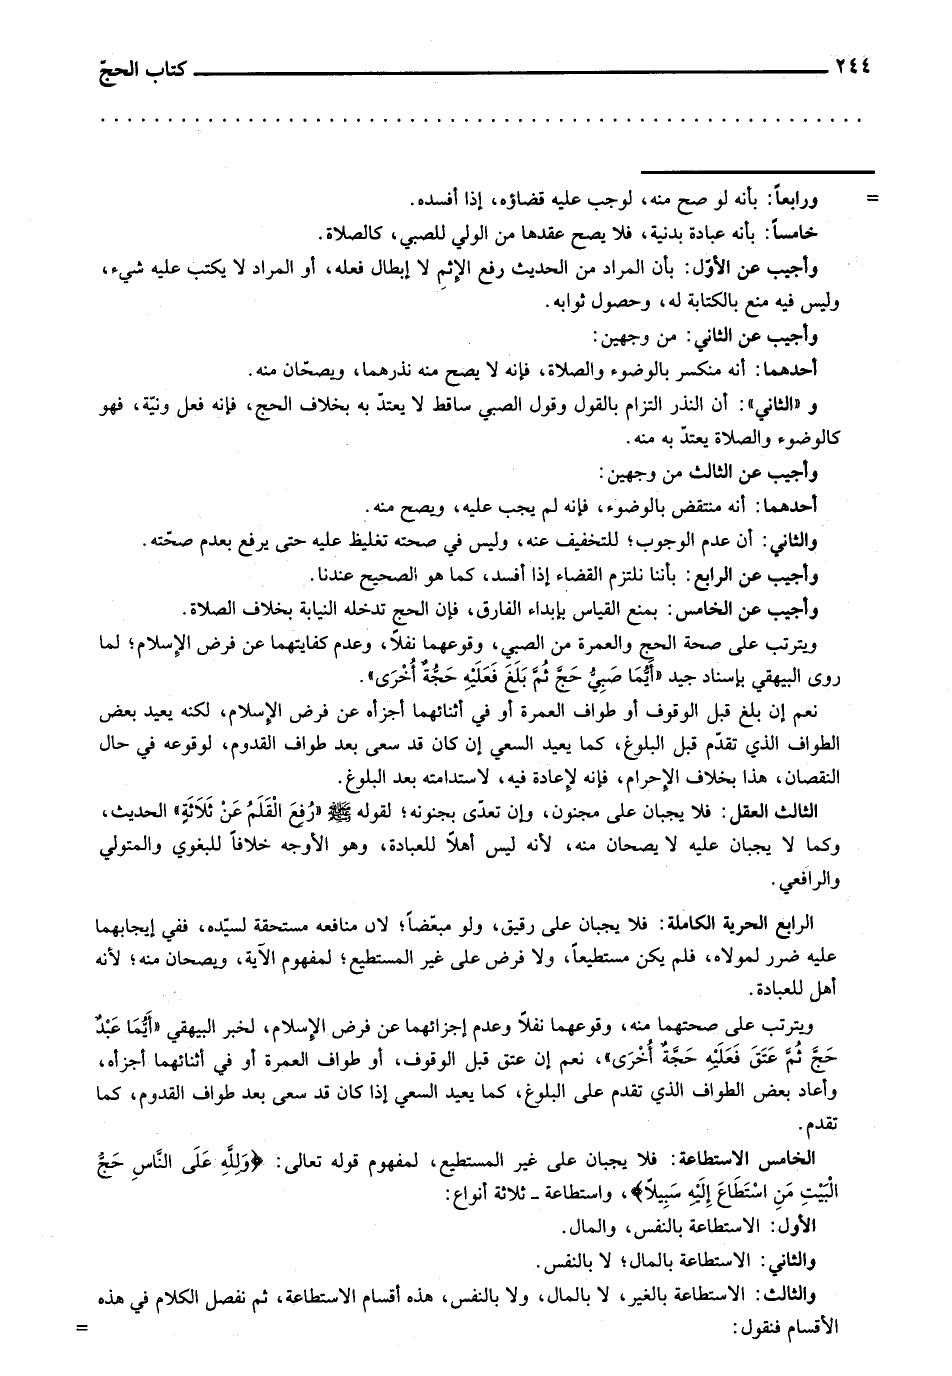 ٢٤٤ كتاب الحجّ
. . . . . . . . . . . . . . . . . . . . . . . . . . . . . . . . . . . . . . . . . . . . . . . . . . . . . . . . .
= ورابعاً: بأنه لو صح منه، لوجب عليه قضاؤه، إذا أفسده.
خامساً: بأنه عبادة بدنية، فلا يصح عقدها من الولي للصبي، كالصلاة.
وأجيب عن الأوّل: بأن المراد من الحديث رفع الإثم لا إبطال فعله، أو المراد لا يكتب عليه شيء،
وليس فيه منع بالكتابة له، وحصول ثوابه.
وأجيب عن الثاني: من وجهين:
أحدهما: أنه منكسر بالوضوء والصلاة، فإنه لا يصح منه نذرهما، ويصحّان منه.
و «الثاني»: أن النذر التزام بالقول وقول الصبي ساقط لا يعتدّ به بخلاف الحج، فإنه فعل ونيّة، فهو
كالوضوء والصلاة يعتدّ به منه.
وأجيب عن الثالث من وجهين:
أحدهما: أنه منتقض بالوضوء، فإنه لم يجب عليه، ويصح منه.
والثاني: أن عدم الوجوب؛ للتخفيف عنه، وليس في صحته تغليظ عليه حتى يرفع بعدم صحّته.
وأجيب عن الرابع: بأننا نلتزم القضاء إذا أفسد، كما هو الصحيح عندنا.
وأجيب عن الخامس: بمنع القياس بإبداء الفارق، فإن الحج تدخله النيابة بخلاف الصلاة.
ويترتب على صحة الحج والعمرة من الصبي، وقوعهما نفلاً، وعدم كفايتهما عن فرض الإسلام؛ لما
روى البيهقي بإسناد جيد «أَيُّمَا صَبِيٍّ حَجَّ ثُمَّ بَلَغَ فَعَلَيْهِ حَجَّةٌ أُخْرَى».
نعم إن بلغ قبل الوقوف أو طواف العمرة أو في أثنائهما أجزأه عن فرض الإسلام، لكنه يعيد بعض
الطواف الذي تقدّم قبل البلوغ، كما يعيد السعي إن كان قد سعى بعد طواف القدوم، لوقوعه في حال
النقصان، هذا بخلاف الإحرام، فإنه لإعادة فيه، لاستدامته بعد البلوغ.
الثالث العقل: فلا يجبان على مجنون، وإن تعدّى بجنونه؛ لقوله ﷺ «رُفِعَ الْقَلَمُ عَنْ ثَلَاثَةٍ» الحديث،
وكما لا يجبان عليه لا يصحان منه، لأنه ليس أهلاً للعبادة، وهو الأوجه خلافاً للبغوي والمتولي
والرافعي.
الرابع الحرية الكاملة: فلا يجبان على رقيق، ولو مبعّضاً؛ لان منافعه مستحقة لسيّده، ففي إيجابهما
عليه ضرر لمولاه، فلم يكن مستطيعاً، ولا فرض على غير المستطيع؛ لمفهوم الآية، ويصحان منه؛ لأنه
أهل للعبادة.
ويترتب على صحتهما منه، وقوعهما نفلاً وعدم إجزائهما عن فرض الإسلام، لخبر البيهقي «أَيُّمَا عَبْدٌ
حَجَّ ثُمَّ عَتَقَ فَعَلَيْهِ حَجَّةٌ أُخْرَى»، نعم إن عتق قبل الوقوف، أو طواف العمرة أو في أثنائهما أجزأه،
وأعاد بعض الطواف الذي تقدم على البلوغ، كما يعيد السعي إذا كان قد سعى بعد طواف القدوم، كما
تقدم.
الخامس الاستطاعة: فلا يجبان على غير المستطيع، لمفهوم قوله تعالى: ﴿وَلِلَّهِ عَلَى النَّاسِ حَجُّ
الْبَيْتِ مَنِ اسْتَطَاعَ إِلَيْهِ سَبِيلاً﴾، واستطاعة ـ ثلاثة أنواع:
الأول: الاستطاعة بالنفس، والمال.
والثاني: الاستطاعة بالمال؛ لا بالنفس.
والثالث: الاستطاعة بالغير، لا بالمال، ولا بالنفس، هذه أقسام الاستطاعة، ثم نفصل الكلام في هذه
الأقسام فنقول: =